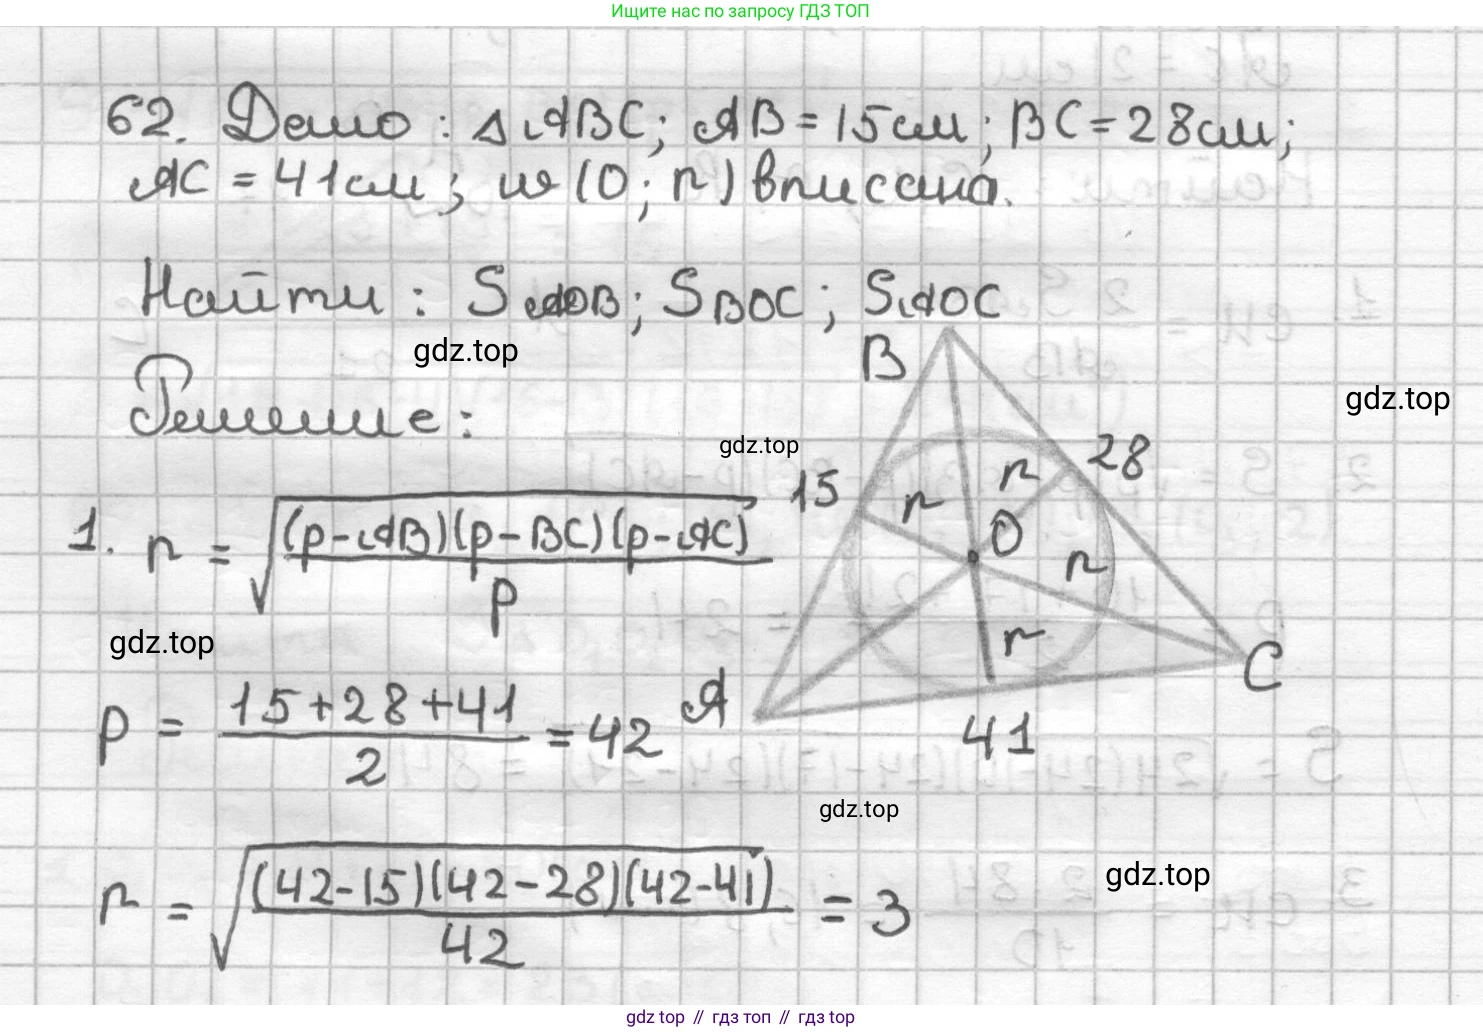 Ищите нас по запросу ГДЗ ТОП
62. Дано: △ABC; AB = 15 см; BC = 28 см;
AC = 41 см; w (O; r) вписана.
Найти: S AOB; S BOC; S AOC
gdz.top
B
gdz.top
Решение:
gdz.top
15 r r 28
1. r = √((p-AB)(p-BC)(p-AC) / p)
O
r
gdz.top
r
C
p = (15+28+41) / 2 = 42
A
41
gdz.top
r = √((42-15)(42-28)(42-41) / 42) = 3
gdz.top
gdz top // гдз топ // гдз top